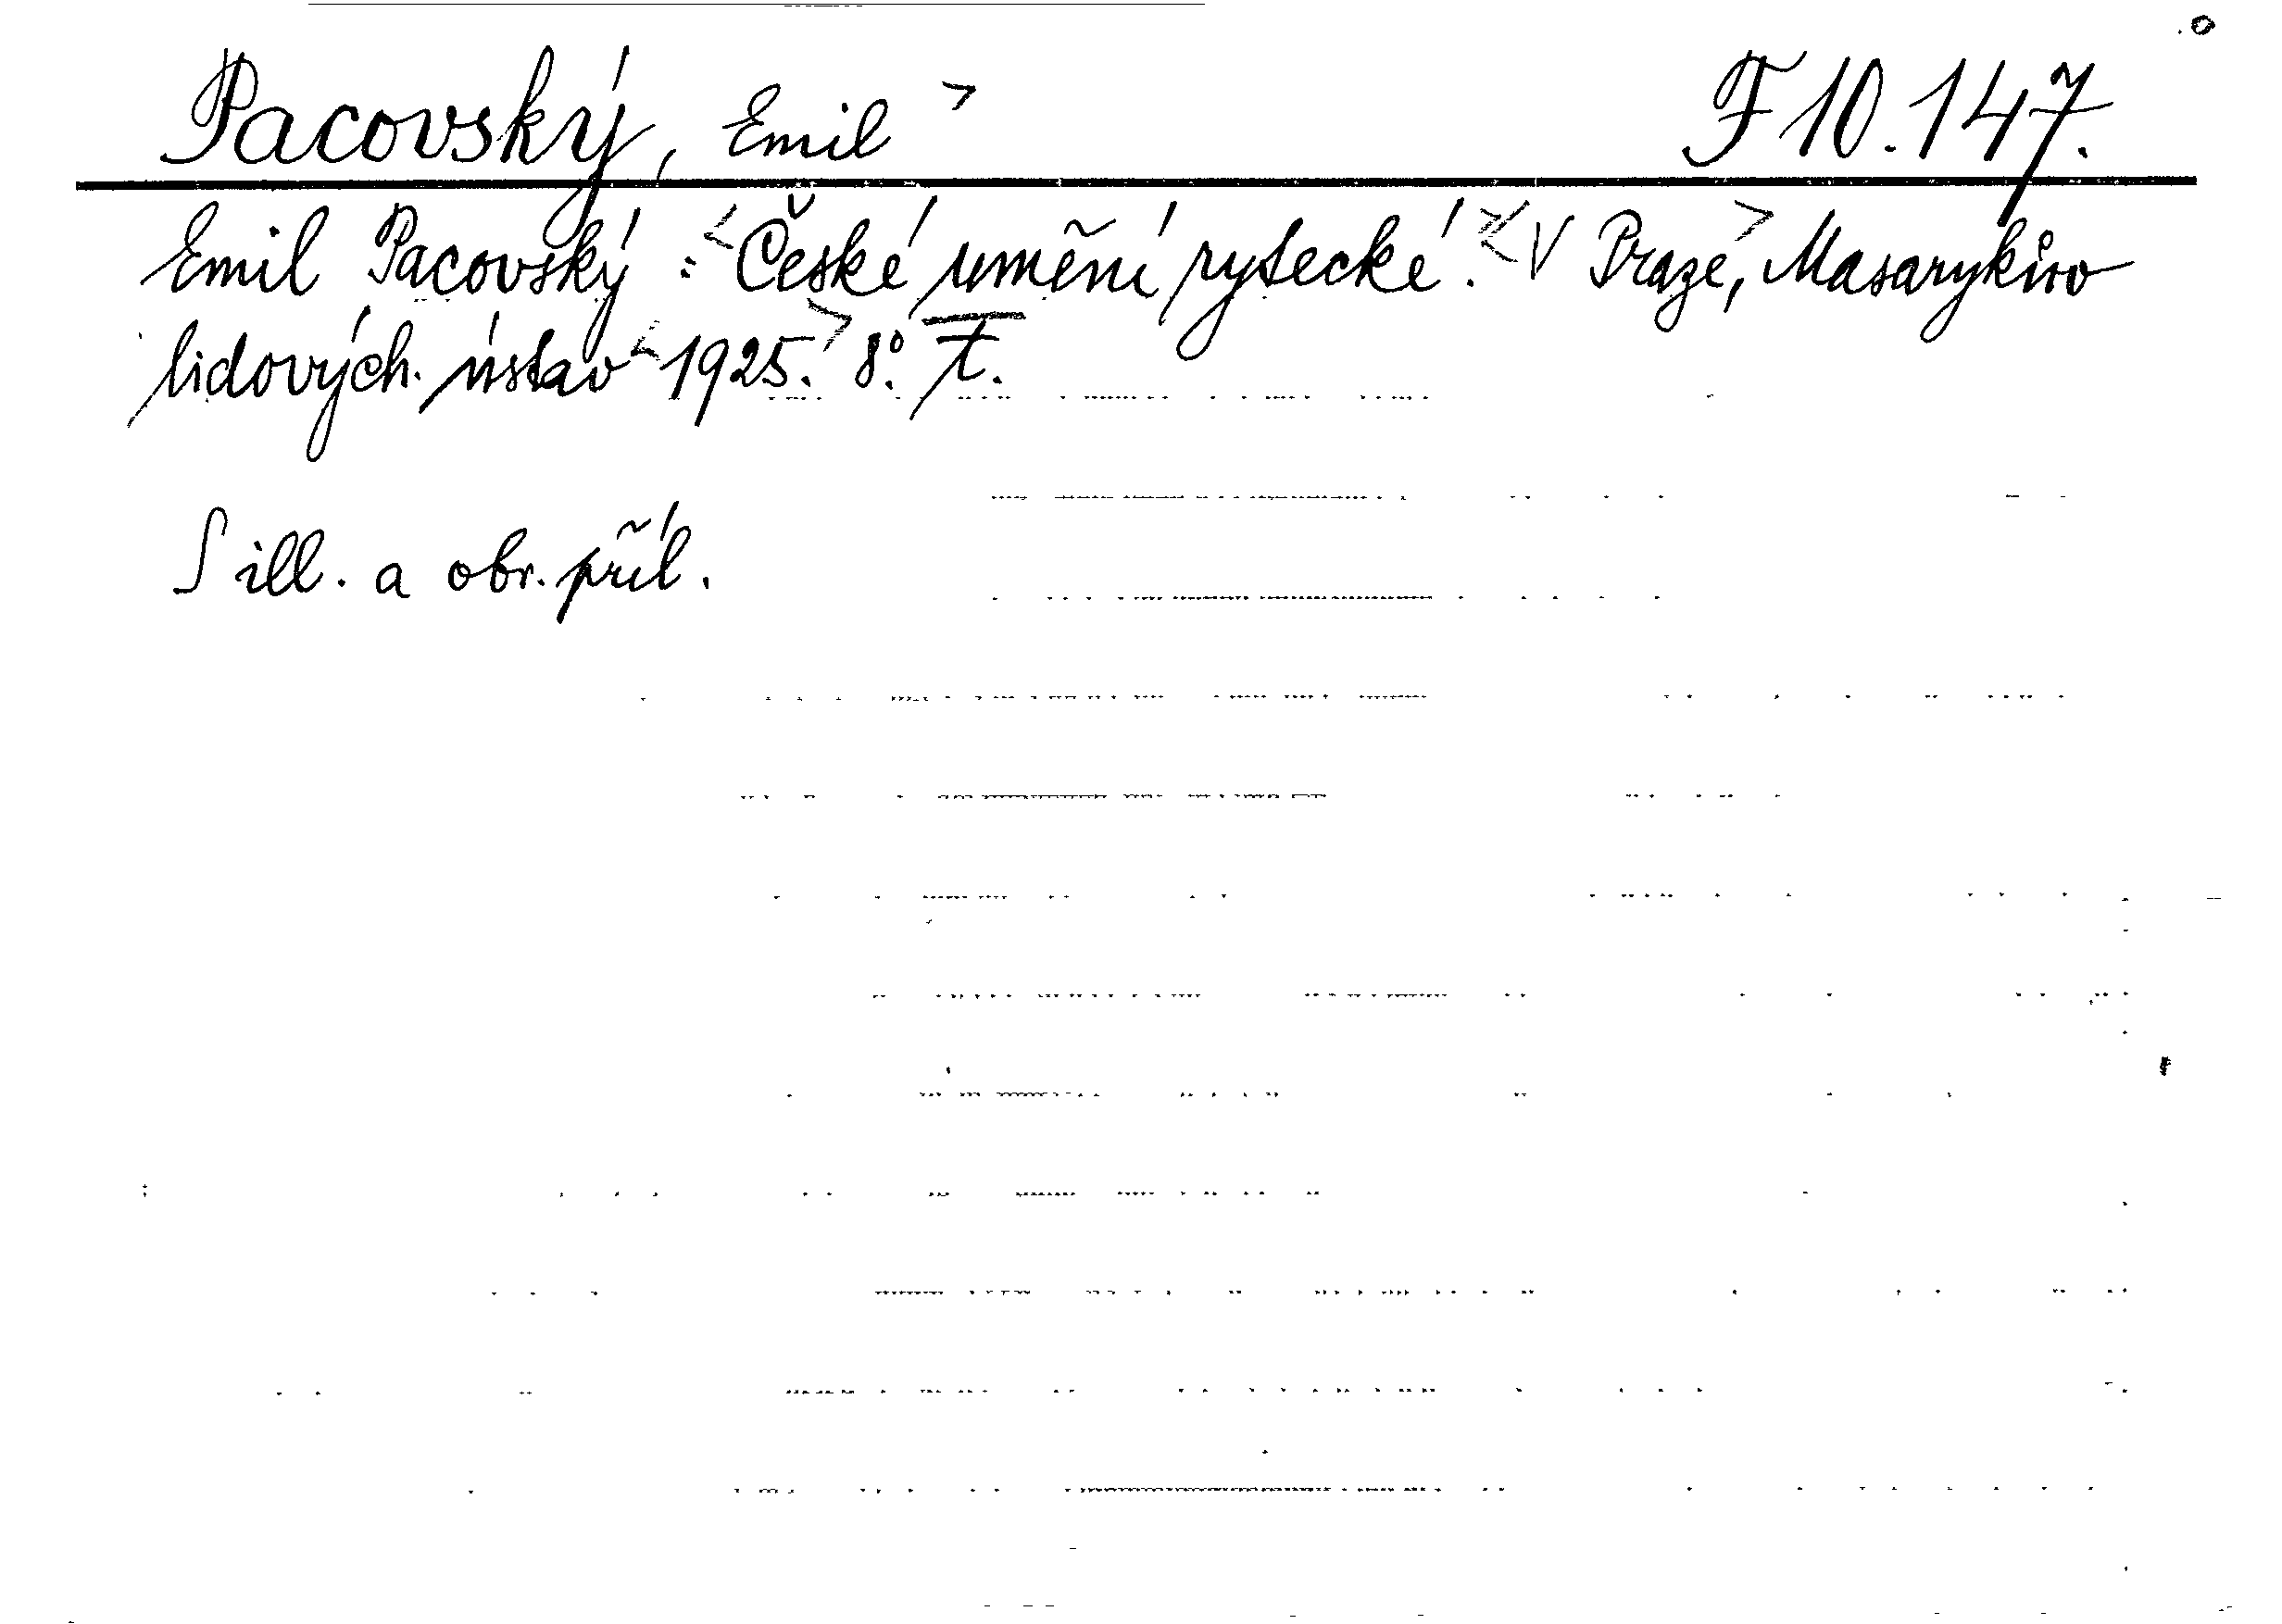 Pacovský, Emil > F 10.147.
Emil Pacovský : <České umění rytecké. >< V Praze, > Masarykův
lidových. ústav < 1925. > 8°. T.
S ill. a obr. příl.